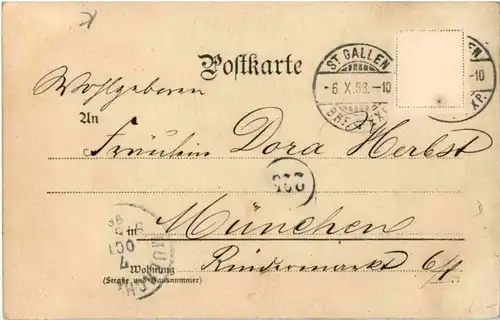 Postkarte
ST. GALLEN
- 6. X. 98. – 10
Wohlgeboren
An
Fräulein Dora Herbst
in München
Wohnung Rindermarkt 6/I
(Straße und Hausnummer)
7 OCT
98